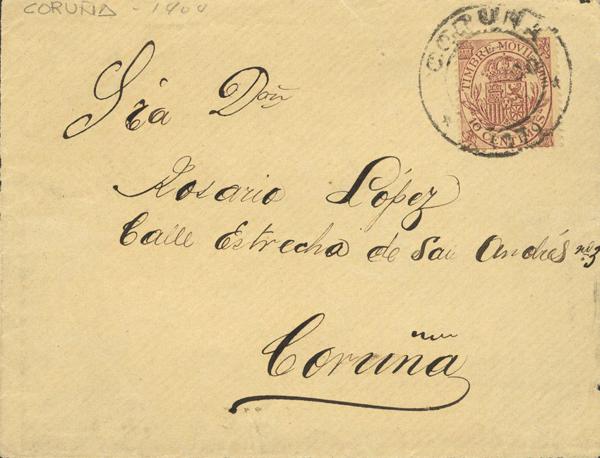 CORUÑA - 1900
CORUÑA
TIMBRE MOVIL
10 CENTIMOS
Sra Dañ
Rosario López
Calle Estrecha de San Andrés nº 3
Coruña